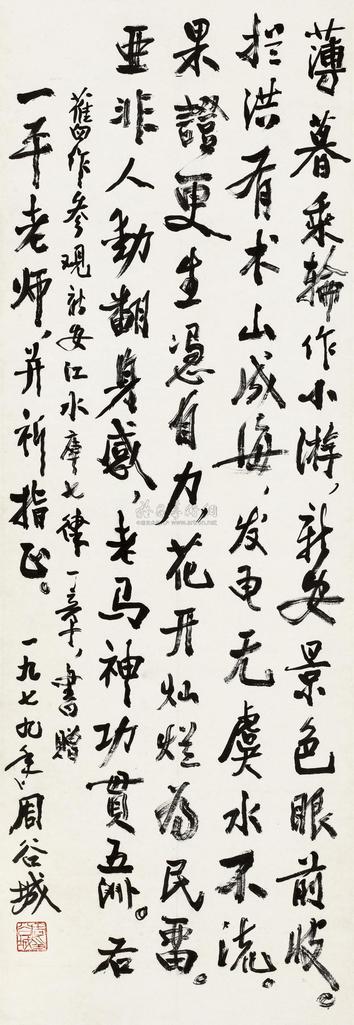 薄暮乘輪作小游，新安景色眼前收。
拦洪有术山成海，发电无虞水不流。
果證更生憑自力，花开灿烂為民留。
亞非人動翻身感，老马神功貫五洲。右
舊作參观新安江水庫七律一首，書贈
一平老师，并祈指正。一九七九年，周谷城